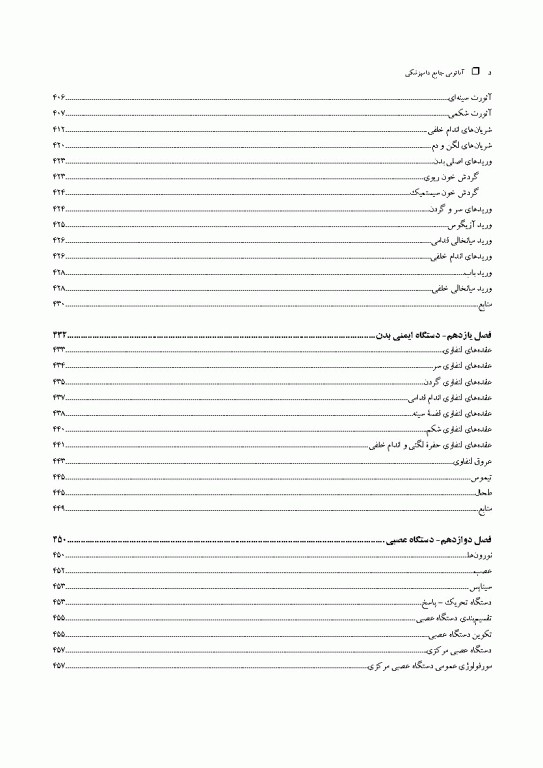 د ❐ آناتومی جامع دامپزشکی
آئورت سینه‌ای ۴۰۶
آئورت شکمی ۴۰۷
شریان‌های اندام خلفی ۴۱۲
شریان‌های لگن و دم ۴۲۰
وریدهای اصلی بدن ۴۲۳
گردش خون ریوی ۴۲۳
گردش خون سیستمیک ۴۲۴
وریدهای سر و گردن ۴۲۴
ورید آزیگوس ۴۲۵
ورید میانخالی قدامی ۴۲۶
وریدهای اندام خلفی ۴۲۶
ورید باب ۴۲۸
ورید میانخالی خلفی ۴۲۸
منابع ۴۳۰
فصل یازدهم- دستگاه ایمنی بدن ۴۳۲
عقده‌های لنفاوی ۴۳۳
عقده‌های لنفاوی سر ۴۳۴
عقده‌های لنفاوی گردن ۴۳۵
عقده‌های لنفاوی اندام قدامی ۴۳۷
عقده‌های لنفاوی قفسهٔ سینه ۴۳۸
عقده‌های لنفاوی شکم ۴۴۰
عقده‌های لنفاوی حفرهٔ لگنی و اندام خلفی ۴۴۱
عروق لنفاوی ۴۴۳
تیموس ۴۴۵
طحال ۴۴۵
منابع ۴۴۹
فصل دوازدهم- دستگاه عصبی ۴۵۰
نورون‌ها ۴۵۰
عصب ۴۵۲
سیناپس ۴۵۳
دستگاه تحریک – پاسخ ۴۵۳
تقسیم‌بندی دستگاه عصبی ۴۵۵
تکوین دستگاه عصبی ۴۵۵
دستگاه عصبی مرکزی ۴۵۷
مورفولوژی عمومی دستگاه عصبی مرکزی ۴۵۷